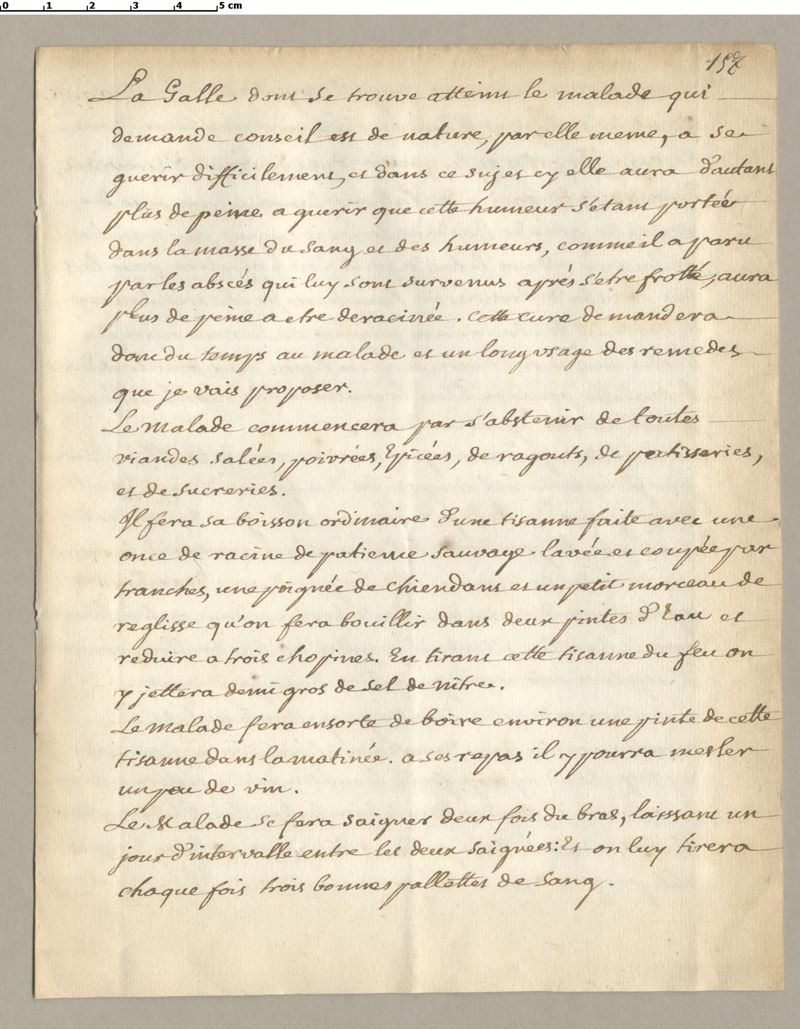 0 1 2 3 4 5 cm
157
La Galle dont se trouve atteint le malade qui
demande conseil est de nature, par elle meme, a se
guerir difficilement, et dans ce sujet cy elle aura d'autant
plus de peine a guerir que cette humeur s'etant portée
dans la masse du sang et des humeurs, comme il a paru
par les abscés qui luy sont survenus aprés s'etre frotté, aura
plus de peine a etre deracinée. cette cure demandera
donc du temps au malade et un long usage des remedes
que je vais proposer.
Le Malade commencera par s'abstenir de toutes
viandes salées, poivrées, Epicées, de ragouts, de patisseries,
et de sucreries.
Il fera sa boisson ordinaire d'une tisanne faite avec une
once de racine de patience sauvage lavée et coupée par
tranches, une poignée de chiendant et un petit morceau de
reglisse qu'on fera bouillir dans deux pintes d'Eau et
reduire a trois chopines. En tirant cette tisanne du feu on
y jettera demi gros de sel de nitre.
Le Malade fera ensorte de boire environ une pinte de cette
tisanne dans la matinée. a ses repas il y pourra mesler
un peu de vin.
Le Malade se fera saigner deux fois du bras, laissant un
jour d'intervalle entre les deux saignées: Et on luy tirera
chaque fois trois bonnes pallettes de sang.